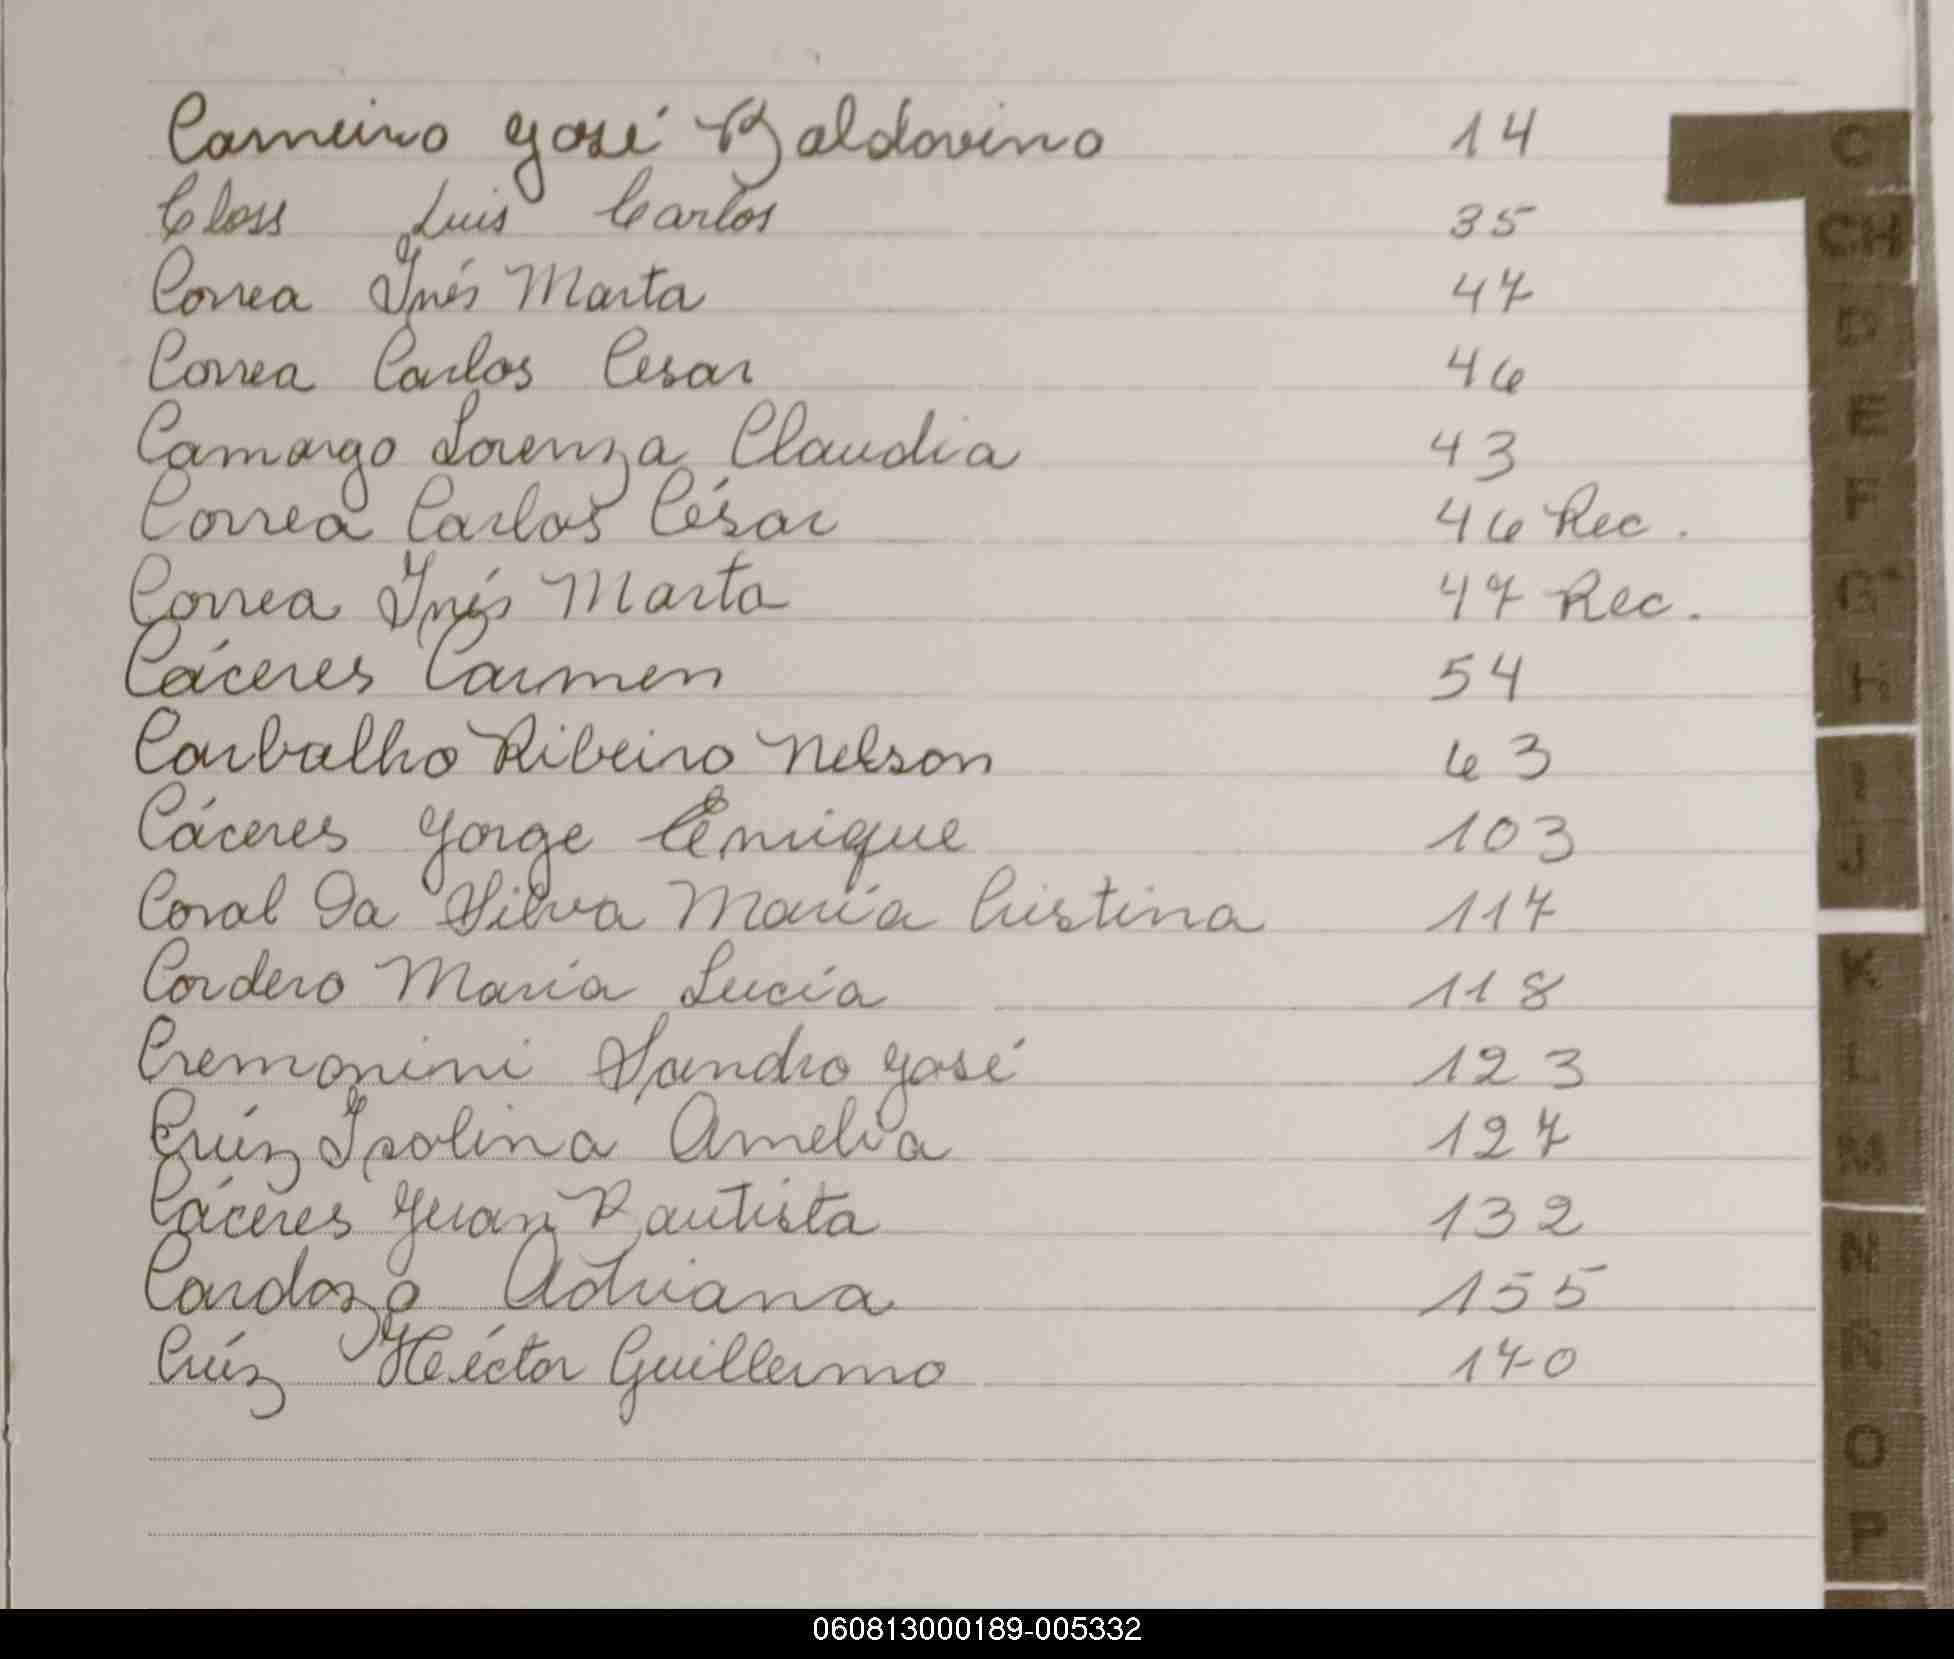 Carneiro José Baldovino 14
Closs Luis Carlos 35
Correa Inés Marta 47
Correa Carlos Cesar 46
Camargo Lorenza Claudia 43
Correa Carlos César 46 Rec.
Correa Inés Marta 47 Rec.
Cáceres Carmen 54
Carbalho Ribeiro Nelson 63
Cáceres Jorge Enrique 103
Coral Da Silva María Cristina 117
Cordero María Lucía 118
Cremonini Sandro José 123
Crúz Isolina Amelia 127
Cáceres Juan Bautista 132
Cardozo Adriana 155
Crúz Héctor Guillermo 170
C
CH
D
E
F
G
H
I
J
K
L
M
N
Ñ
O
P
060813000189-005332